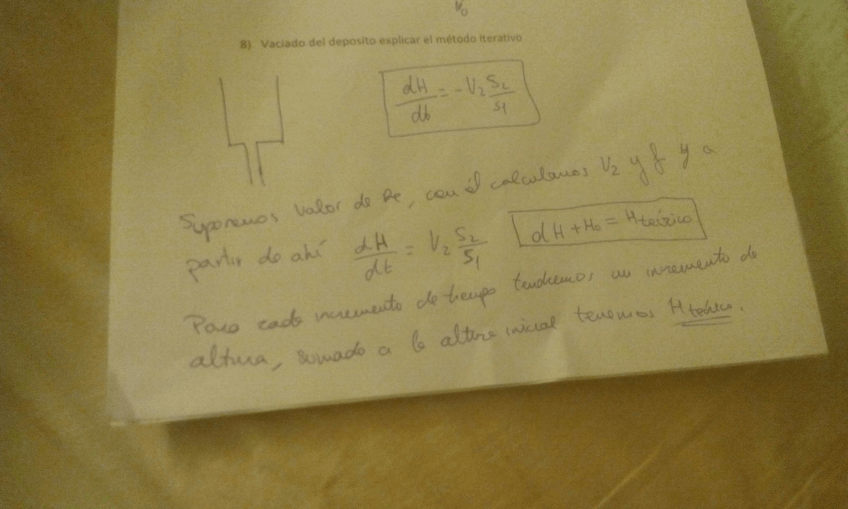 V₀
8) Vaciado del deposito explicar el método iterativo
dH/dt = -V₂ S₂/S₁
Suponemos valor de Re, con él calculamos V₂ y f y a
partir de ahí dH/dt = V₂ S₂/S₁ dH + H₀ = H teórico
Para cada incremento de tiempo tendremos un incremento de
altura, sumado a la altura inicial tenemos H teórico.